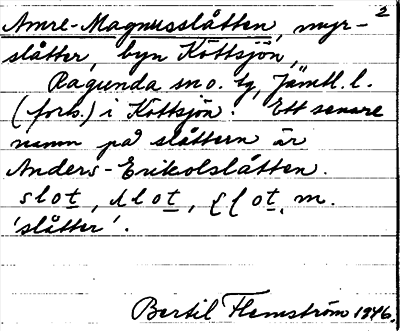 2
Amre-Magnusslåtten, myr-
slåtter, byn Köttsjön,
Ragunda sn o. tg, Jämtl. l.
(forts.) i Köttsjön. Ett senare
namn på slåttern är
Anders-Erikolslåtten.
slot, m.
'slåtter'.
Bertil Flemström 1946.